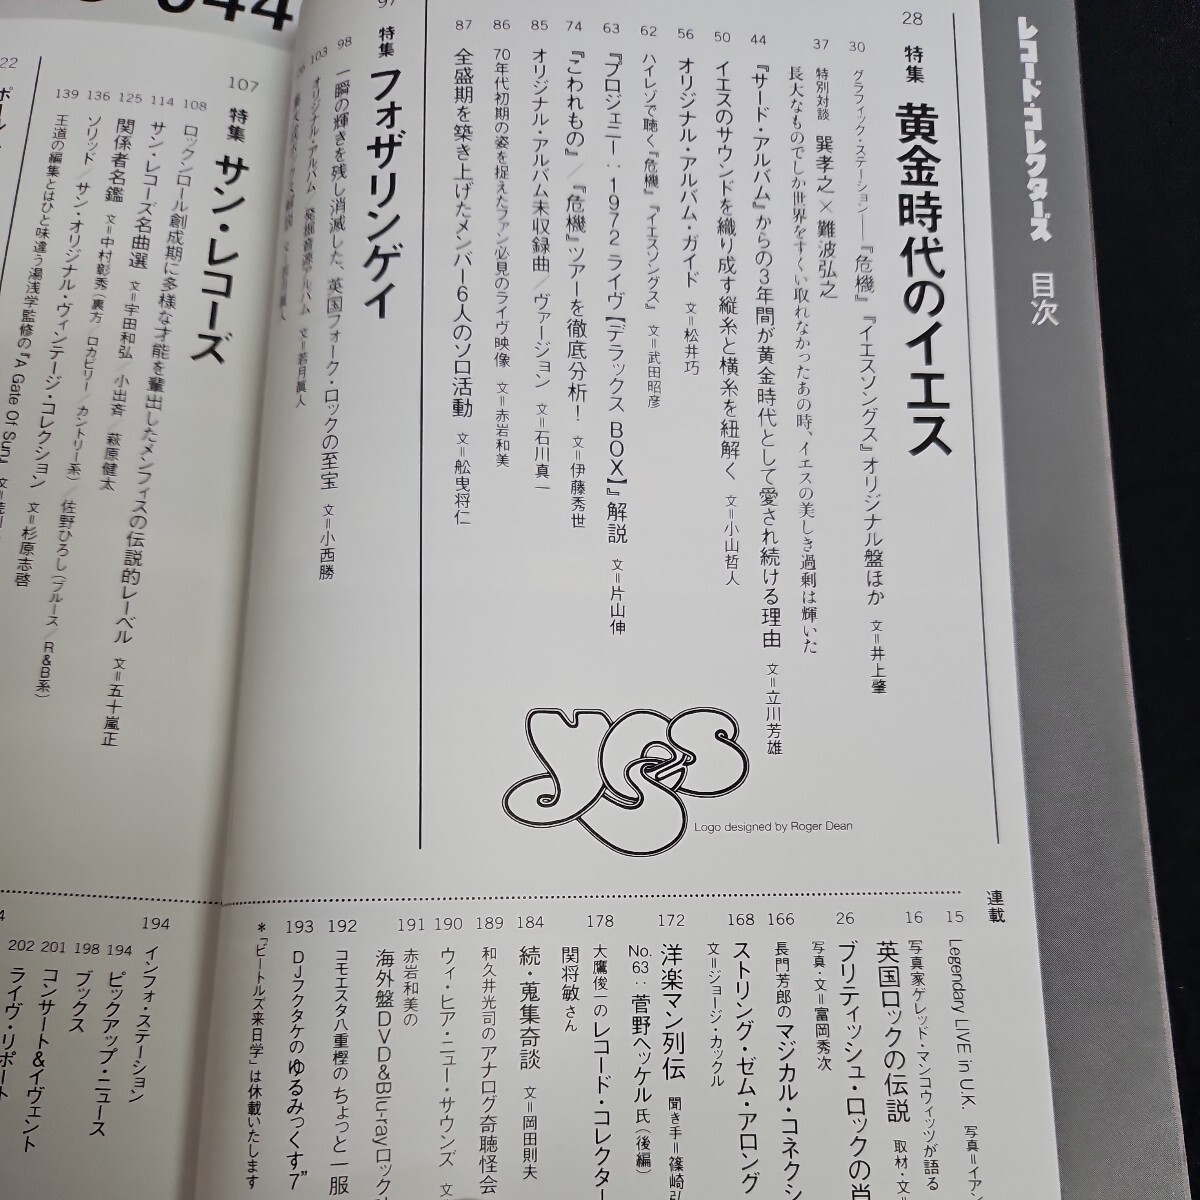 レコード・コレクターズ 目次
28 特集 黄金時代のイエス
30 グラフィック・ステーション──『危機』『イエスソングス』オリジナル盤ほか 文=井上肇
37 特別対談 巽孝之×難波弘之
長大なものでしか世界をすくい取れなかったあの時、イエスの美しき過剰は輝いた
44 『サード・アルバム』からの3年間が黄金時代として愛され続ける理由 文=立川芳雄
50 イエスのサウンドを織り成す縦糸と横糸を紐解く 文=小山哲人
56 オリジナル・アルバム・ガイド 文=松井巧
62 ハイレゾで聴く『危機』『イエスソングス』 文=武田昭彦
63 『プロジェニー：1972ライヴ【デラックスBOX】』解説 文=片山伸
74 『こわれもの』／『危機』ツアーを徹底分析！ 文=伊藤秀世
85 オリジナル・アルバム未収録曲／ヴァージョン 文=石川真一
86 70年代初期の姿を捉えたファン必見のライヴ映像 文=赤岩和美
87 全盛期を築き上げたメンバー6人のソロ活動 文=舩曳将仁
Yes
Logo designed by Roger Dean
97 特集 フォザリンゲイ
98 一瞬の輝きを残し消滅した、英国フォーク・ロックの至宝 文=小西勝
103 オリジナル・アルバム／発掘音源アルバム 文=若月眞人
107 特集 サン・レコーズ
108 ロックンロール創成期に多様な才能を輩出したメンフィスの伝説的レーベル 文=五十嵐正
114 サン・レコーズ名曲選 文=宇田和弘／小出斉／萩原健太
125 関係者名鑑 文=中村彰秀（裏方／ロカビリー／カントリー系）／佐野ひろし（ブルース／R&B系）
136 ソリッド／サン・オリジナル・ヴィンテージ・コレクション 文=杉原志啓
139 王道の編集とはひと味違う湯浅学監修の『A Gate Of Sun』
連載
15 Legendary LIVE in U.K. 写真=イアン
16 写真家ゲレッド・マンコウィッツが語る
英国ロックの伝説 取材・文
26 ブリティッシュ・ロックの肖
写真・文=富岡秀次
166 長門芳郎のマジカル・コネクシ
168 ストリング・ゼム・アロング
文=ジョージ・カックル
172 洋楽マン列伝 聞き手=篠崎弘
No.63：菅野ヘッケル氏（後編）
178 大鷹俊一のレコード・コレクター
関将敏さん
184 続・蒐集奇談 文=岡田則夫
189 和久井光司のアナログ奇聴怪会
190 ウィ・ヒア・ニュー・サウンズ 文=
191 赤岩和美の
海外盤DVD&Blu-rayロック
192 コモエスタ八重樫のちょっと一服
193 DJフクタケのゆるみっくす7"
＊「ビートルズ来日学」は休載いたします
194 インフォ・ステーション
194 ピックアップ・ニュース
198 ブックス
201 コンサート&イヴェント
202 ライヴ・リポート